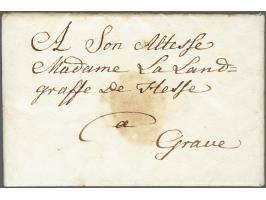 A Son Altesse
Madame La Land=
graffe De Hesse
a
Grave